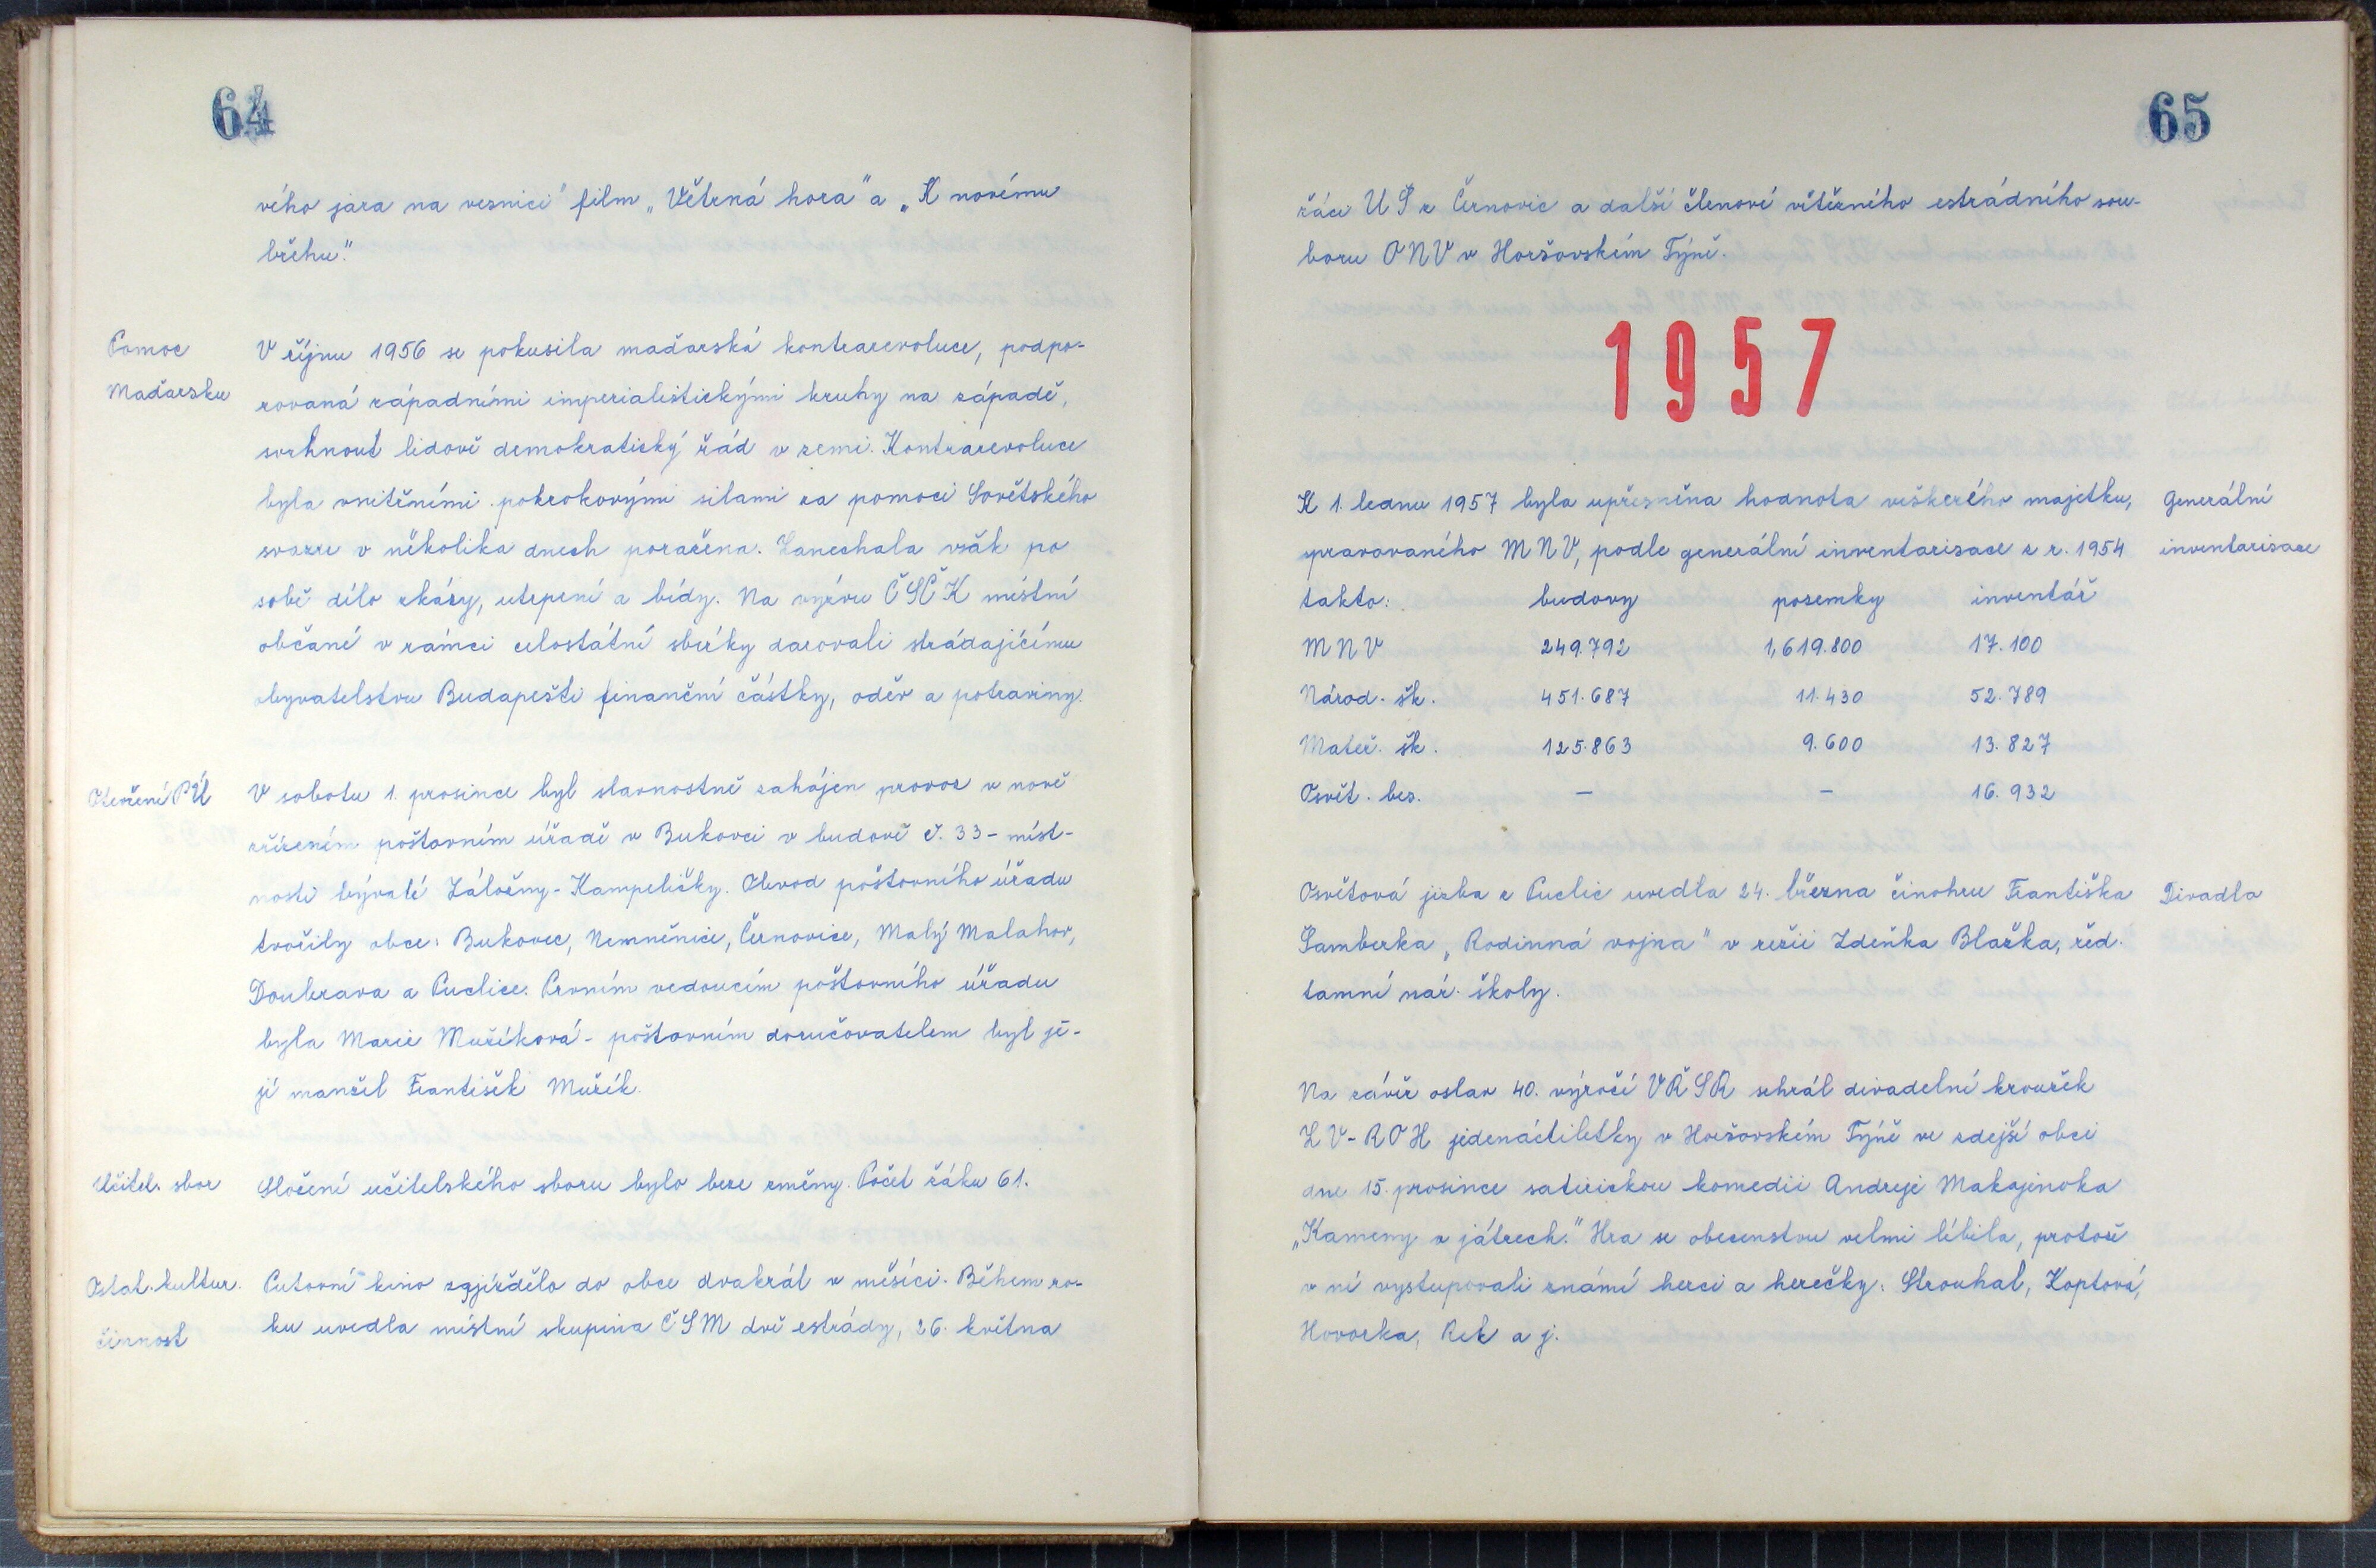 64
vého jara na vesnici" film „Větrná hora" a „K novému
břehu."
Pomoc
Maďarsku
V říjnu 1956 se pokusila maďarská kontrarevoluce, podpo-
rovaná západními imperialistickými kruhy na západě,
svrhnout lidově demokratický řád v zemi. Kontrarevoluce
byla vnitřními pokrokovými silami za pomoci Sovětského
svazu v několika dnech poražena. Zanechala však po
sobě dílo zkázy, utrpení a bídy. Na výzvu ČSČK místní
občané v rámci celostátní sbírky darovali strádajícímu
obyvatelstvu Budapešti finanční částky, oděv a potraviny.
Otevření PÚ
V sobotu 1. prosince byl slavnostně zahájen provoz v nově
zřízeném poštovním úřadě v Bukovci v budově č. 33 - míst-
nosti bývalé Záložny - Kampeličky. Obvod poštovního úřadu
tvořily obce: Bukovec, Nemněnice, Černovice, Malý Malahov,
Doubrava a Puclice. Prvním vedoucím poštovního úřadu
byla Marie Mužíková - poštovním doručovatelem byl je-
jí manžel František Mužík.
Učitel. sbor
Složení učitelského sboru bylo beze změny. Počet žáků 61.
Ostat. kultur.
činnost
Putovní kino zajíždělo do obce dvakrát v měsíci. Během ro-
ku uvedla místní skupina ČSM dvě estrády, 26. května
65
žáci UŠ z Černovic a další členové vítězného estrádního sou-
boru ONV v Horšovském Týně.
1957
K 1. lednu 1957 byla upřesněna hodnota veškerého majetku,
spravovaného MNV, podle generální inventarisace z r. 1954
Generální
inventarisace
takto: budovy pozemky inventář
MNV 249.792 1,619.800 17.100
Národ. šk. 451.687 11.430 52.789
Mateř. šk. 125.863 9.600 13.827
Osvět. bes. — — 16.932
Osvětová jizba z Puclic uvedla 24. března činohru Františka
Šamberka „Rodinná vojna" v režii Zdeňka Blažka, řed.
tamní nár. školy.
Divadla
Na závěr oslav 40. výročí VŘSR sehrál divadelní kroužek
ZV-ROH jedenáctiletky v Horšovském Týně ve zdejší obci
dne 15. prosince satirickou komedii Andreje Makajenoka
„Kameny v játrech." Hra se obecenstvu velmi líbila, protože
v ní vystupovali známí herci a herečky: Strouhal, Koptová,
Hovorka, Rek a j.